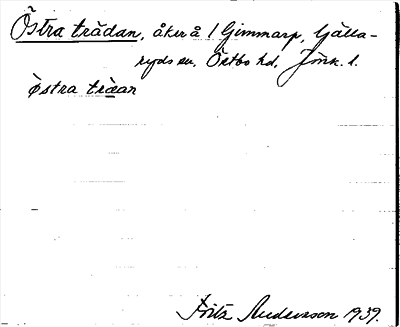 Östra trädan, åker å 1 Gimmarp, Källa-
ryds sn, Östbo hd, Jönk. l.
östra träan
Fritz Andersson 1939.